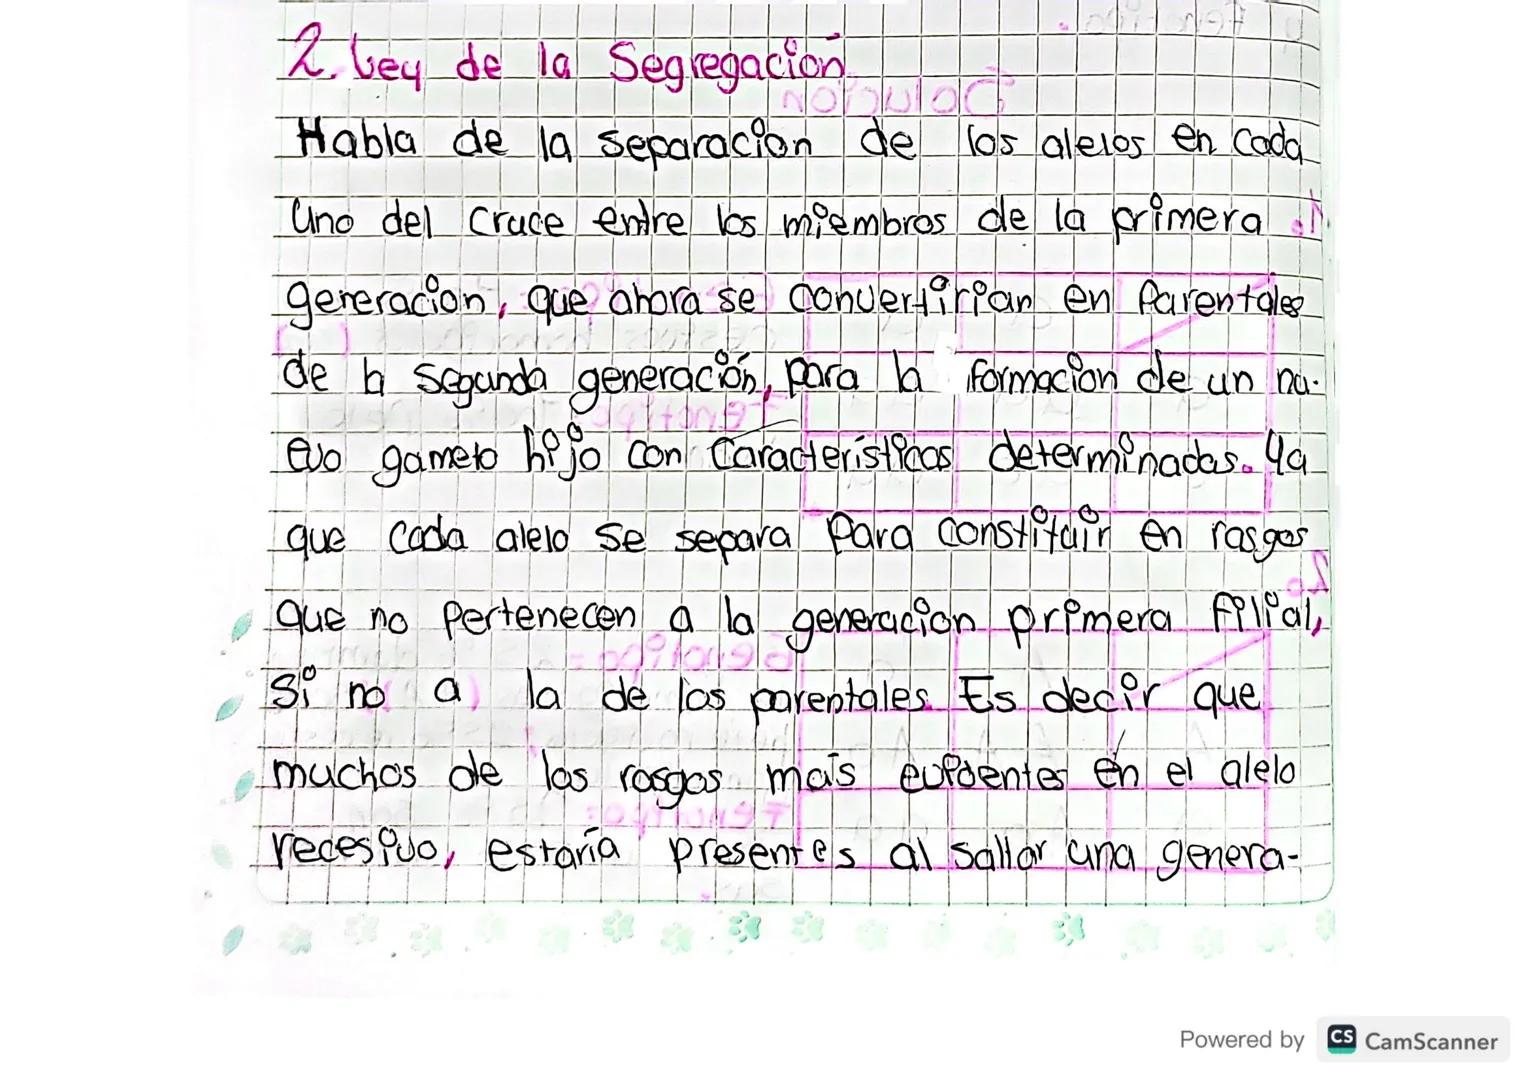 2. Ley de la Segregación
Habla de la separacion de los alelos en cada
uno del cruce entre los miembros de la primera
generacion, que ahora se convertirian en Parentales
de la segunda generación, para la formacion de un nu-
evo gameto hijo con Características determinadas. Ya
que cada alelo se separa para constituir en rasgos
que no pertenecen a la generacion primera filial,
si no a la de los parentales. Es decir que
muchos de los rasgos mais evidentes en el alelo
recesivo, estaría presentes al saltar una genera-
Powered by CS CamScanner